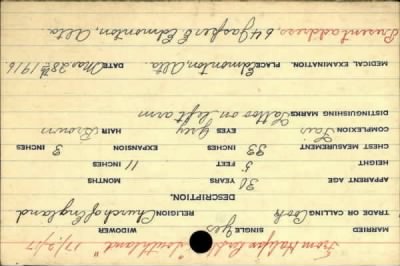 From Halifax per S.S. " 17/2/17
MARRIED SINGLE yes WIDOWER
TRADE OR CALLING Cook RELIGION Church of England
DESCRIPTION.
APPARENT AGE 30 YEARS MONTHS
HEIGHT 5 FEET 11 INCHES
CHEST MEASUREMENT 33 INCHES EXPANSION 3 INCHES
COMPLEXION Fair EYES Grey HAIR Brown
DISTINGUISHING MARKS Tattoo on left arm
MEDICAL EXAMINATION. PLACE Edmonton, Alta. DATE Mar 28th 1916
Present address, 64 Jasper E Edmonton, Alta.